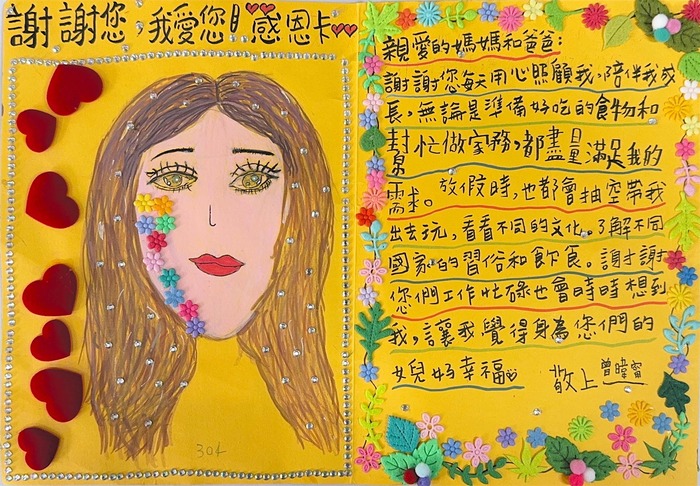 謝謝您,我愛您!感恩卡
304
親愛的媽媽和爸爸:
謝謝您每天用心照顧我,陪伴我成
長,無論是準備好吃的食物和
幫忙做家務,都盡量滿足我的
需求。放假時,也都會抽空帶我
出去玩,看看不同的文化。了解不同
國家的習俗和飲食。謝謝
您們工作忙碌也會時時想到
我,讓我覺得身為您們的
女兒好幸福♡ 敬上 曾暐